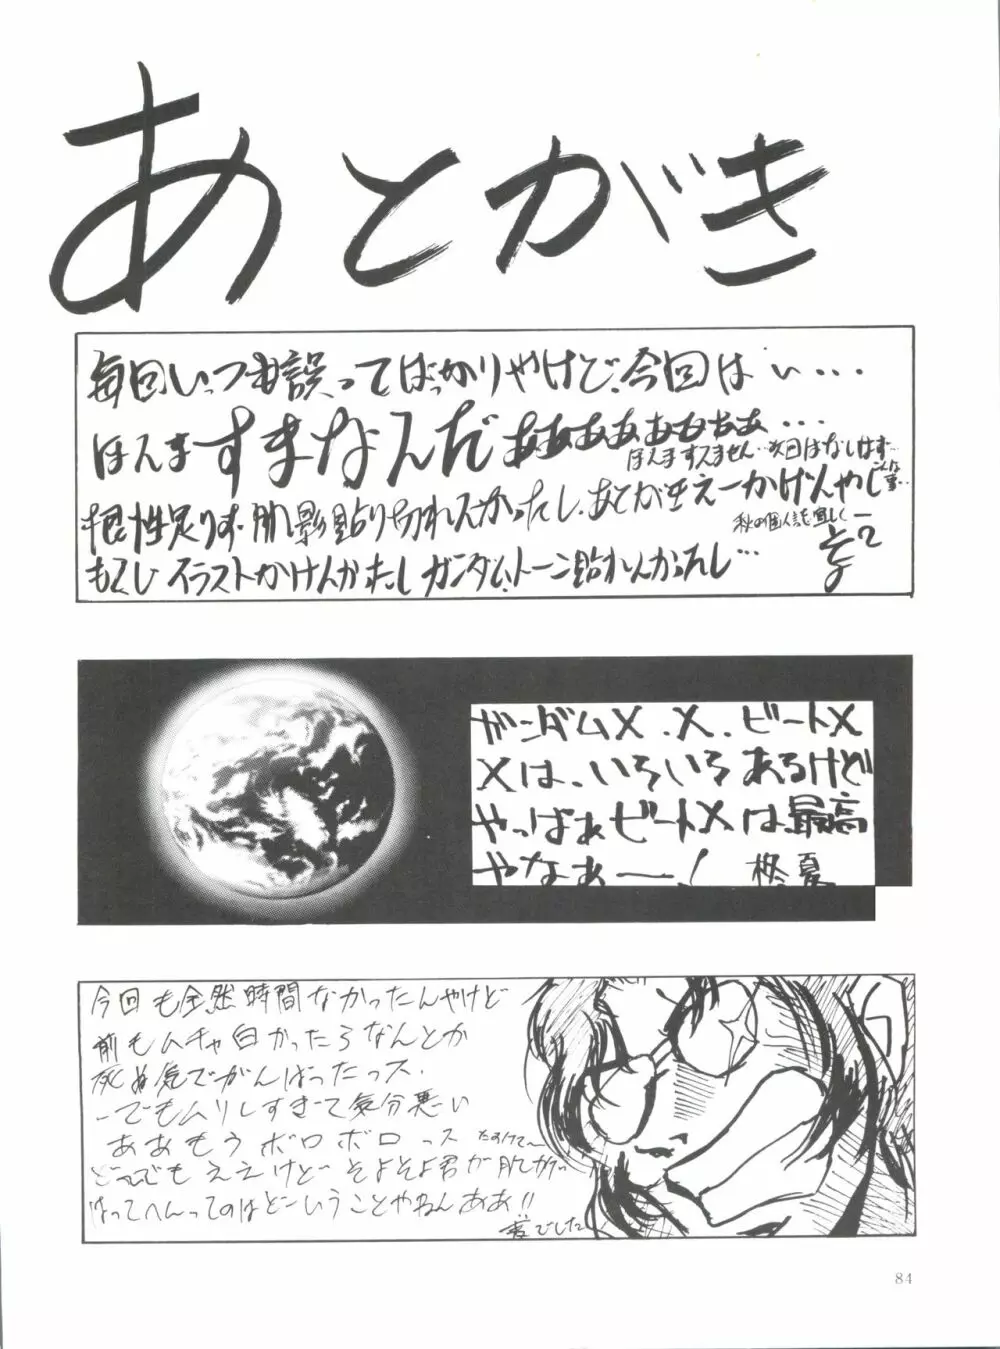 あとがき
毎回いっつも誤ってばっかりやけど、今回はい・・・
ほんますまなんだあああああああ・・・
ほんますみません・・次回はなしはず・・
こんな事・・
根性足りず、肌影貼り切れんかったし、あとがきえーかげんやし
秋の個人誌も宜しくー
もくじイラストかけんかったし ガンダム、トーン貼れんかったし・・・
ガンダムX、X、ビートX
Xは、いろいろあるけど
やっぱぁビートXは最高
やなぁー！ 柊夏
今回も全然時間なかったんやけど
前もムチャ白かったろなんとか
死ぬ気でがんばったっス、
ーでもムリしすぎて気分悪い
ああもうボロボロっス たすけて〜
どーでもええけど そよそよ君が肌カゲ
はってへんってのはどーいうことやねんああ!!
でした
84